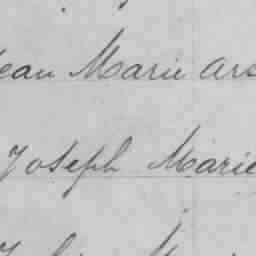 Jean Marie Ars
Joseph Marie